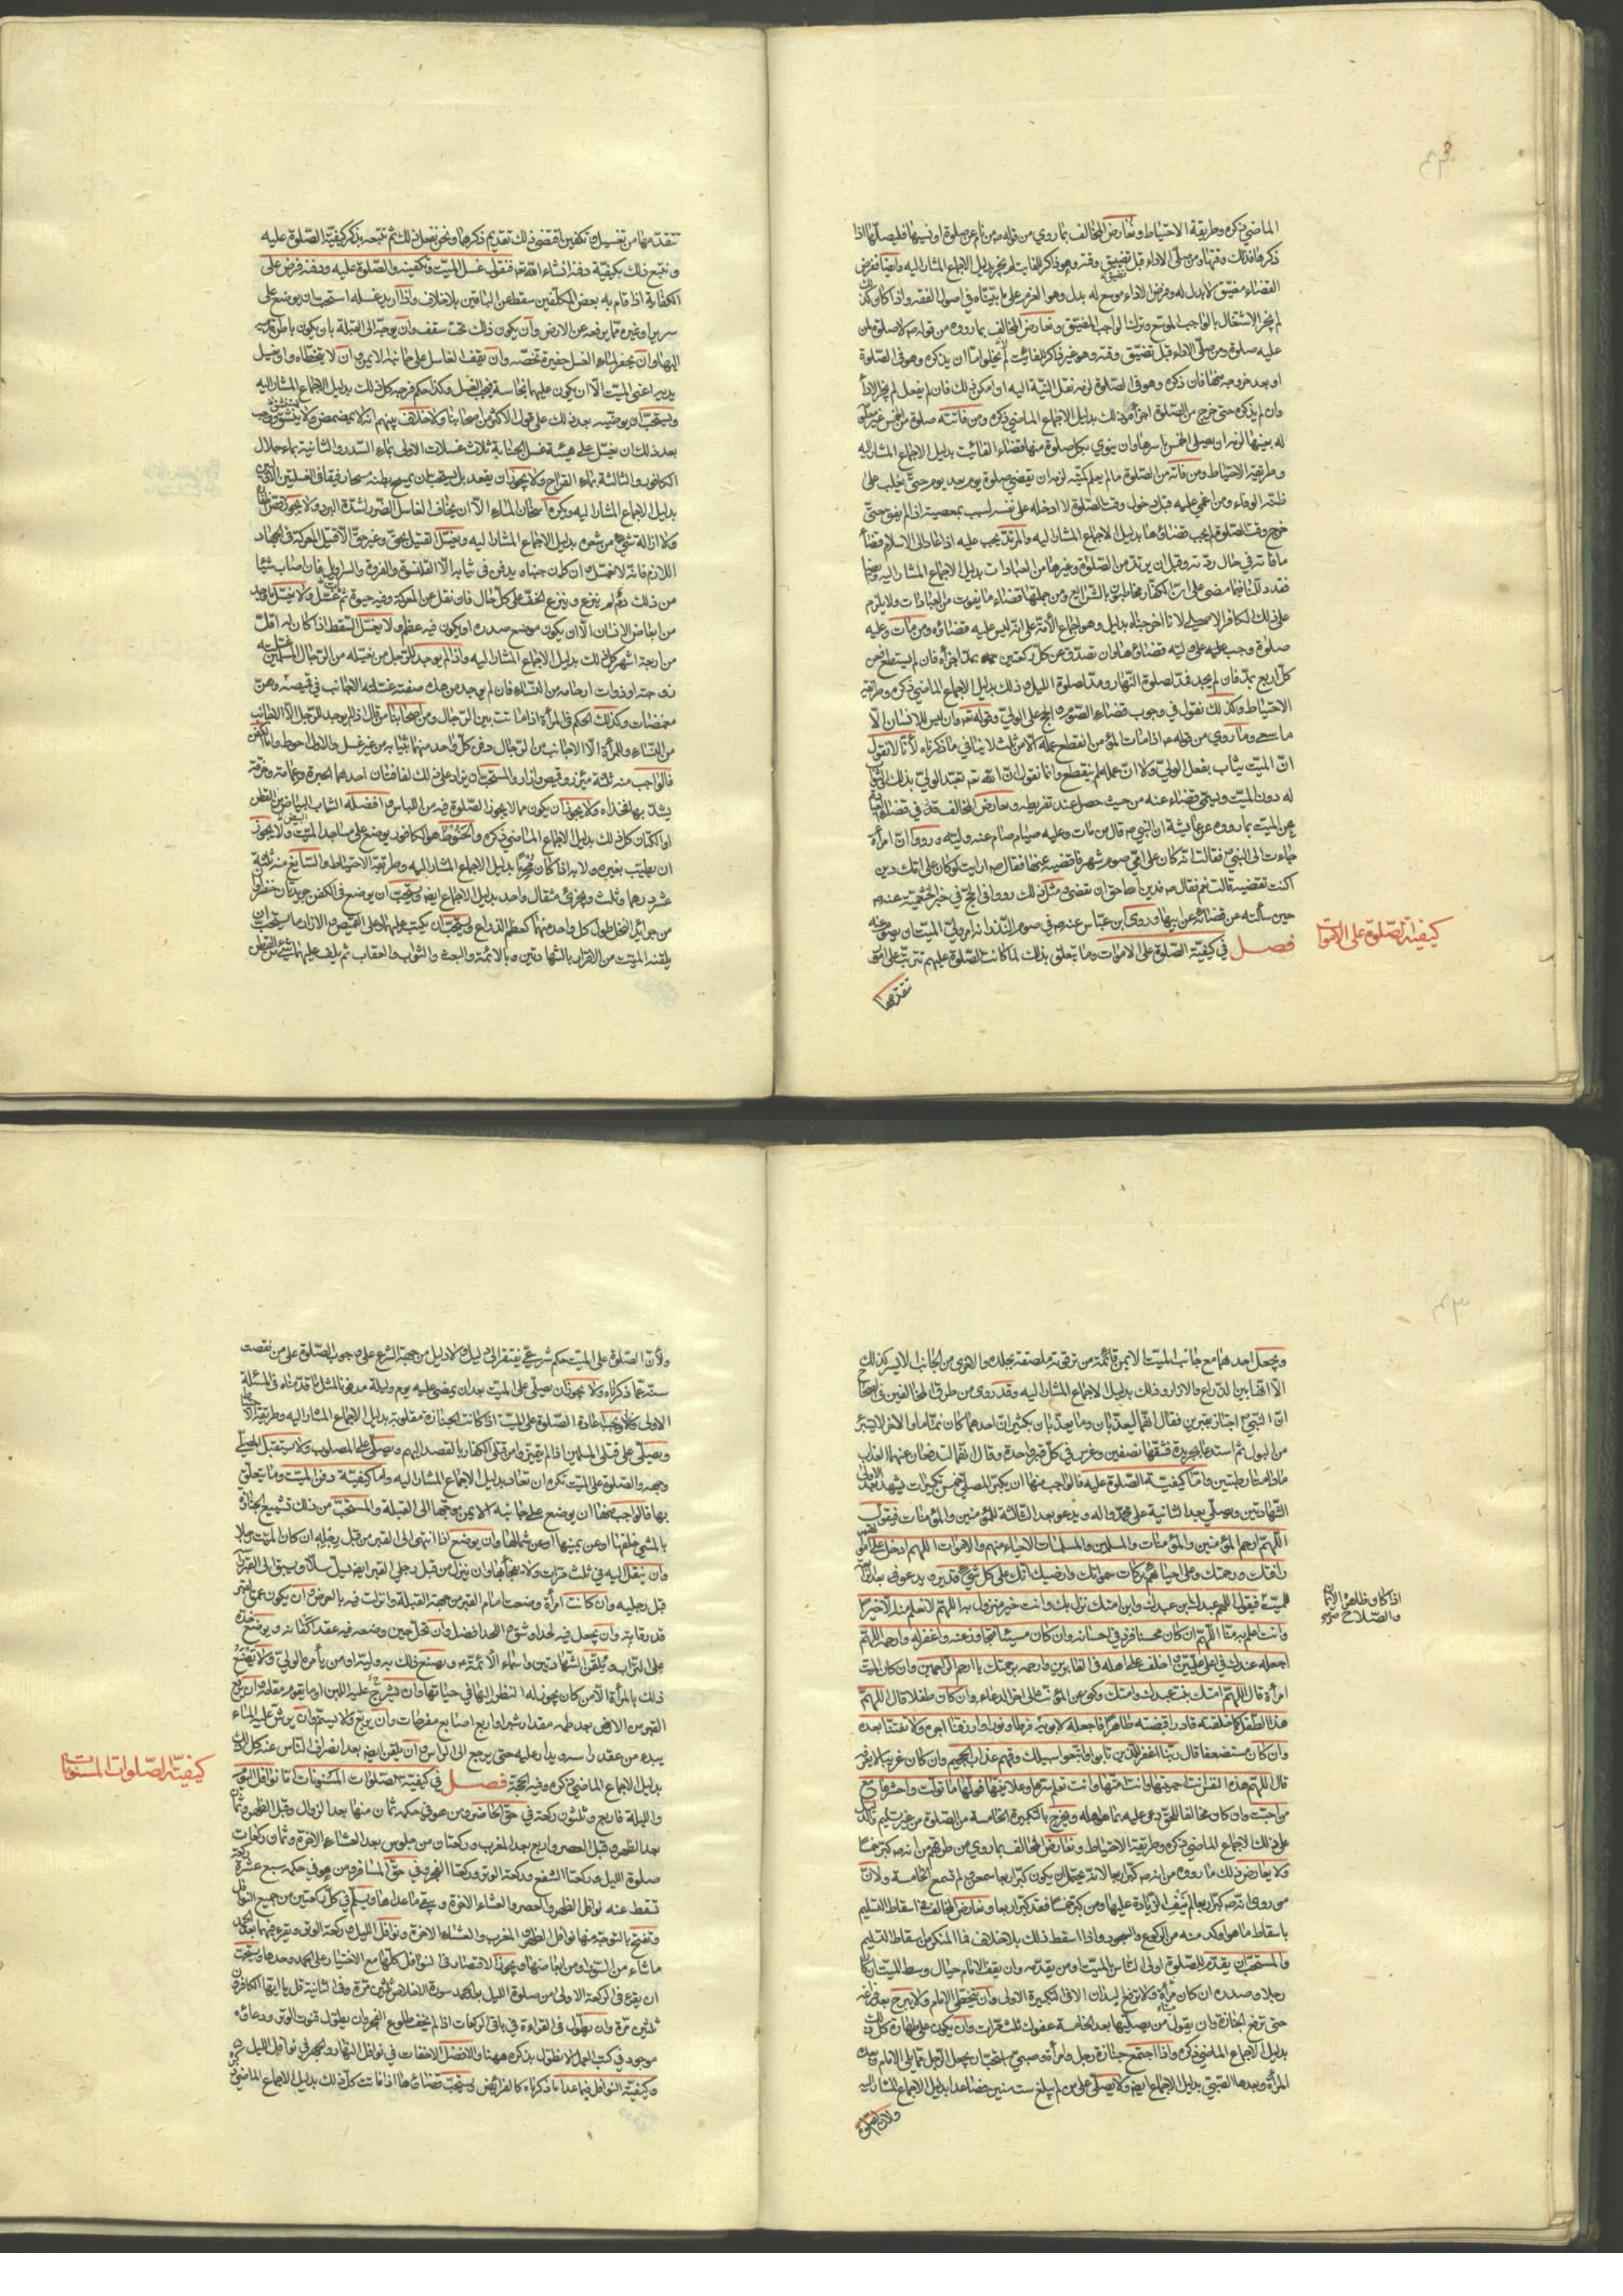 الماضي ذكره وطريقة الاحتياط ونعارض المخالف بما روي من قوله ص من نام عن صلوة او نسيها فليصلها اذا
ذكرها فذلك وقتها ومن صلى الاداء قبل تضيق وقته وهو ذاكر للفايت لم يجز بدليل الاجماع المشار اليه وايضا ففرض
القضاء مضيق لا بدل له وفرض الاداء موسع له بدل وهو العزم على ما بيناه في اصول الفقه واذا كان كذلك
لم يجز الاشتغال بالواجب الموسع وترك الواجب المضيق ونعارض المخالف بما رووه من قوله ص لا صلوة لمن
عليه صلوة ومن صلى الاداء قبل تضيق وقته وهو غير ذاكر للفائت لم يخل اما ان يذكره وهو في الصلوة
او بعد خروجه منها فان ذكره وهو في الصلوة لزمه نقل النية اليه ان امكن ذلك فان لم يفعل لم يجز الاداء
وان لم يذكره حتى خرج من الصلوة اجزأه ذلك بدليل الاجماع الماضي ذكره ومن فاتته صلوة من الخمس غير معلومة
له بعينها لزمه ان يصلى الخمس باسرها وان ينوي بكل صلوة منها قضاء الفائت بدليل الاجماع المشار اليه
وطريقة الاحتياط ومن فاته من الصلوة ما لم يعلم كميته لزمه ان يقضي صلوة يوم بعد يوم حتى يغلب على
ظنه الوفاء ومن اغمي عليه قبل دخول وقت الصلوة لا ادخله على نفسه لسبب بمعصية اذا لم يفق حتى
خرج وقت الصلوة لم يجب قضاؤها بدليل الاجماع المشار اليه والمرتد يجب عليه اذا عاد الى الاسلام قضاء
ما فاته في حال ردته وقبل ان يرتد من الصلوة وغيرها من العبادات بدليل الاجماع المشار اليه وايضا
فقد دللنا فيما مضى على ان الكفار مخاطبون بالشرائع ومن جملتها قضاء ما يفوت من العبادات ولا يلزم
على ذلك الكافر الاصلي لانا اخرجناه بدليل وهو اجماع الامة على انه ليس عليه قضاؤه ومن مات وعليه
صلوة وجب على وليه قضاؤها وان تصدق عن كل ركعتين بمد اجزأه فان لم يستطع فعن
كل اربع بمد فان لم يجد فمد لصلوة النهار ومد لصلوة الليل وذلك بدليل الاجماع الماضي ذكره وطريقة
الاحتياط وكذلك نقول في وجوب قضاء الصوم والحج على الولي وقوله تع وان ليس للانسان الا
ما سعى وما روي من قوله ع اذا مات المؤمن انقطع عمله الا من ثلث لا ينافي ما ذكرناه لانا لا نقول
ان الميت يثاب بفعل الولي ولا ان عمله لم ينقطع وانما نقول ان الله تع تعبد الولي بذلك والثواب
له دون الميت ويسمى قضاء عنه من حيث حصل عند تفريطه ونعارض المخالف في قضاء الصيام
عن الميت بما رووه عن عايشة ان النبي ص قال من مات وعليه صيام صام عنه وليه ورووا ان امرأة
جاءت الى النبي ص فقالت انه كان على امي صوم شهر فاقضيه عنها فقال ص ارايت لو كان على امك دين
اكنت تقضيه قالت نعم فقال ص فدين الله احق ان يقضى ومثل ذلك رووا في الحج في خبر الخثعمية عنه ص
حين سألته عن قضائه عن ابيها وروى ابن عباس عنه ص في صوم النذر انه امر ولي الميت ان يصوم عنه
فصل في كيفية الصلوة على الاموات وما يتعلق بذلك لما كانت الصلوة عليهم تترتب على امور
كيفية الصلوة على الاموات
تتقدمها
تتقدمها من تغسيل وتكفين اقتضى ذلك تقديم ذكرها ونحن نفعل ذلك ثم نتبعه بذكر كيفية الصلوة عليه
ونتبع ذلك بكيفية دفنه انشاء الله تع فنقول غسل الميت وتكفينه والصلوة عليه ودفنه فرض على
الكفاية اذا قام به بعض المكلفين سقط عن الباقين بلا خلاف واذا اريد غسله استحب ان يوضع على
سرير او غيره مما يرفعه عن الارض وان يكون ذلك تحت سقف وان يوجه الى القبلة بان يكون باطن قدميه
اليها وان يحفر لماء الغسل حفيرة تخصه وان يقف الغاسل على جانبه الايمن وان لا يتخطاه وان يغسل
يديه اعني الميت الا ان يكون عليهما نجاسة فيجب الغسل وكذا حكم فرجه كل ذلك بدليل الاجماع المشار اليه
ويستحب ان يوضيه بعد ذلك على قول الاكثر من اصحابنا ولا خلاف بينهم انه لا يمضمض ولا ينشق ويجب
بعد ذلك ان يغسل على هيئة غسل الجنابة ثلاث غسلات الاولى بماء السدر والثانية بماء جلال
الكافور والثالثة بماء القراح ولا يجوز ان يقعد بل يستحب ان يمسح بطنه مسحا رفيقا في الغسلتين الاولتين
بدليل الاجماع المشار اليه ويكره اسخان الماء الا ان يخاف الغاسل الضرر لشدة البرد ولا يجوز قص اظفاره
ولا ازالة شيء من شعره بدليل الاجماع المشار اليه ويغسل القتيل بحق وغير حق الا قتيل المعركة في الجهاد
اللازم فانه لا يغسل وان كان جنبا بل يدفن في ثيابه الا القلنسوة والفروة والسراويل فان اصاب شيئا
من ذلك دم لم ينزع وينزع الخف على كل حال فان نقل عن المعركة وفيه حيوة ثم مات غسل ولا يغسل ما وجد
من ابعاض الانسان الا ان يكون موضع صدره او يكون فيه عظم ولا يغسل السقط اذا كان له اقل
من اربعة اشهر كل ذلك بدليل الاجماع المشار اليه واذا لم يوجد للرجل من يغسله من الرجال المسلمين غسلته
زوجته او ذوات ارحامه من النساء فان لم يوجد من هذه صفته غسلته الاجانب في قميصه وهن
مغمضات وكذلك الحكم في المرأة اذا ماتت بين الرجال ومن اصحابنا من قال اذا لم يوجد للرجل الا الاجانب
من النساء وللمرأة الا الاجانب من الرجال دفن كل واحد منهما بثيابه من غير غسل والاول احوط واما الكفن
فالواجب منه ثلثة مئزر وقميص وازار والمستحب ان يزاد على ذلك لفافتان احدهما الحبرة وعمامة وخرقة
يشد بها فخذاه ولا يجوز ان يكون مما لا يجوز الصلوة فيه من اللباس وافضله الثياب البياض من القطن
او الكتان كل ذلك بدليل الاجماع الماضي ذكره والحنوط هو الكافور يوضع على مساجد الميت ولا يجوز
ان يطيب بغيره ولا به اذا كان محرما بدليل الاجماع المشار اليه وطريقة الاحتياط والسايغ منه ثلثة
عشر درهما وثلث ويجزئ مثقال واحد بدليل الاجماع ايضا ويستحب ان يوضع في الكفن جريدتان خضراوان
من جرائد النخل طول كل واحدة منهما كعظم الذراع ويستحب ان يكتب عليهما وعلى القميص والازار ما يستحب ان
يلقنه الميت من الاقرار بالشهادتين وبالائمة والبعث والثواب والعقاب ثم يلف عليهما شيء من القطن
ويجعل احدهما مع جانب الميت الايمن قائمة من ترقوته ملصقة بجلده والاخرى من الجانب الايسر كذلك
الا انها بين الذراع والازار وذلك بدليل الاجماع المشار اليه وقد روي من طرق المخالفين في الصحاح
ان النبي ص اجتاز بقبرين فقال انهما ليعذبان وما يعذبان بكبير ان احدهما كان نماما والاخر لا يستبرئ
من البول ثم استدعى بجريدة فشقها نصفين وغرس في كل قبر واحدة وقال انهما لتدفعان عنهما العذاب
ما دامتا رطبتين واما كيفية الصلوة عليه فالواجب منها ان يكبر المصلي خمس تكبيرات يشهد بعد الاولى
الشهادتين ويصلي بعد الثانية على محمد واله ويدعو بعد الثالثة للمؤمنين والمؤمنات فيقول
اللهم ارحم المؤمنين والمؤمنات والمسلمين والمسلمات الاحياء منهم والاموات اللهم ادخل على امواتهم
رأفتك ورحمتك وعلى احيائهم بركات سمواتك وارضك انك على كل شيء قدير ويدعو في بعد الرابعة
للميت فيقول اللهم عبدك ابن عبدك وابن امتك نزل بك وانت خير منزول به اللهم لا نعلم منه الا خيرا
وانت اعلم به منا اللهم ان كان محسنا فزد في احسانه وان كان مسيئا فتجاوز عنه واغفر له وارحمه اللهم
اذا كان ظاهره الايمان
والصلاح
اجعله عندك في اعلى عليين واخلف على اهله في الغابرين وارحمه برحمتك يا ارحم الراحمين وان كان الميت
امرأة قال اللهم امتك بنت عبدك وامتك وكنى عن المؤنث الى اخر الدعاء وان كان طفلا قال اللهم
هذا الطفل كما خلقته قادرا قبضته طاهرا فاجعله لابويه فرطا ونورا وارزقنا اجره ولا تفتنا بعده
وان كان مستضعفا قال ربنا اغفر للذين تابوا واتبعوا سبيلك وقهم عذاب الجحيم وان كان غريبا لا يعرفه
قال اللهم هذه النفس انت احييتها وانت امتها وانت تعلم سرها وعلانيتها فولها ما تولت واحشرها مع
من احبت وان كان مخالفا للحق دعى عليه بما هو اهله ويخرج بالتكبيرة الخامسة من الصلوة من غير تسليم وذلك
على ذلك الاجماع الماضي ذكره وطريقة الاحتياط ونعارض المخالف بما روي من طرقهم من انه ص كبر خمسا
ولا يعارض ذلك ما رووه من انه ص كبر اربعا لانه يحتمل ان يكون كبر اربعا سمعهن ولم تسمع الخامسة ولان
من روى انه ص كبر اربعا لم ينف الزيادة عليها ومن كبر خمسا فقد كبر اربعا ونعارض المخالف في اسقاط التسليم
باسقاط ما هو اوكد منه من الركوع والسجود واذا سقط ذلك بلا خلاف فما المنكر من اسقاط التسليم
والمستحب ان يقدم للصلوة اولى الناس بالميت ومن يقدمه وان يقف الامام حيال وسط الميت ان كان
رجلا وصدره ان كان امرأة ولا يرفع اليدان الا في التكبيرة الاولى وان يتحفى الامام ولا يبرح بعد فراغه
حتى ترفع الجنازة وان يقول من يصليها بعد الخامسة عفوك ثلث مرات وان يكون على طهارة كل ذلك
بدليل الاجماع الماضي ذكره واذا اجتمع جنازة رجل وامرأة وصبي استحب ان يجعل الرجل مما يلي الامام وبعده
المرأة وبعدها الصبي بدليل الاجماع ايضا ولا يصلى على من لم يبلغ ست سنين فصاعدا بدليل الاجماع المشار اليه
ولان الصلوة
ولان الصلوة على الميت حكم شرعي يفتقر الى دليل ولا دليل من جهة الشرع على وجوب الصلوة على من نقصت
سنه عما ذكرناه ولا يجوز ان يصلى على الميت بعد ان يمضي عليه يوم وليلة مدفونا لمثل ما قدمناه في المسئلة
الاولى ويجب اعادة الصلوة على الميت اذا كانت الجنازة مقلوبة بدليل الاجماع المشار اليه وطريقة الاحتياط
ويصلى على قتلى المسلمين اذا لم يتميزوا من قتلى الكفار بالقصد اليهم ويصلى على المصلوب ولا يستقبل المصلي
وجهه والصلوة على الميت تكره ان تعاد بدليل الاجماع المشار اليه واما كيفية دفن الميت وما يتعلق
بها فالواجب منها ان يوضع على جانبه الايمن موجها الى القبلة والمستحب من ذلك تشييع الجنازة
بالمشي خلفها او عن يمينها او عن شمالها وان يوضع اذا انتهى الى القبر من قبل رجليه ان كان الميت رجلا
وان ينقل اليه في ثلث مرات ولا يفجأ بها وان ينزل من قبل رجلي القبر ايضا ويسل سلا ويسبق الى القبر رأسه
قبل رجليه وان كانت امرأة وضعت امام القبر من جهة القبلة وانزلت فيه بالعرض وان يكون عمق القبر
قدر قامة وان يجعل فيه لحد وشق اللحد افضل وان تحل حين وضعه فيه عقد اكفانه ويوضع خده
على التراب ويلقن الشهادتين واسماء الائمة ع ويصنع ذلك به وليه او من يأمره الولي ولا يصنع
ذلك بالمرأة الا من كان يجوز له النظر اليها في حياتها وان يشرج عليه اللبن او ما يقوم مقامه وان يرفع
القبر من الارض بعد طمه مقدار شبر او اربع اصابع مفرجات وان يربع ولا يسنم وان يرش عليه الماء
يبدء من عند راسه ويدار عليه حتى يرجع الى الراس وان يلقن ايضا بعد انصراف الناس عنه كل ذلك
بدليل الاجماع الماضي ذكره وفيه الحجة فصل في كيفية الصلوات المسنونات اما نوافل اليوم
كيفية الصلوات المسنونات
والليلة فاربع وثلثون ركعة في حق الحاضر ومن هو في حكمه ثمان منها بعد الزوال وقبل الظهر وثمان
بعد الظهر وقبل العصر واربع بعد المغرب وركعتان من جلوس بعد العشاء الاخرة وثمان ركعات
صلوة الليل وركعتا الشفع وركعة الوتر وركعتا الفجر وفي حق المسافر ومن هو في حكمه سبع عشرة ركعة
تسقط عنه نوافل الظهر والعصر والعشاء الاخرة ويبقى ما عداها ويسلم في كل ركعتين من جميع النوافل
وتفتتح بالتوجه منها نوافل الظهر والمغرب والعشاء الاخرة ونوافل الليل وركعة الوتر ويقرء فيها بعد الحمد
ما شاء من السور او من ابعاضها ويجوز الاقتصار في النوافل كلها مع الاختيار على الحمد وحدها ويستحب
ان يقرء في الركعة الاولى من صلوة الليل بعد الحمد سورة الاخلاص ثلثين مرة وفي الثانية قل يا ايها الكافرون
ثلثين مرة وان يطول في القراءة في باقي الركعات اذا لم يخف طلوع الفجر وان يطول قنوت الوتر ودعاؤه
موجود في كتب العمل لا نطول بذكره ههنا والافضل الاخفات في نوافل النهار والجهر في نوافل الليل
وكيفية النوافل فيما عدا ما ذكرناه كالفرائض ويستحب قضاؤها اذا فاتت كل ذلك بدليل الاجماع الماضي